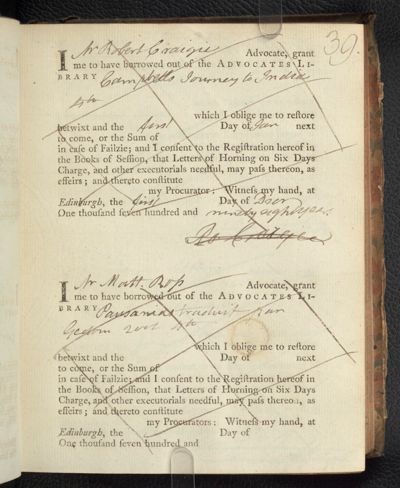 39.
I Mr Robert Craigie Advocate, grant
me to have borrowed out of the ADVOCATES LI-
BRARY Campbells Journey to India
4to
which I oblige me to reſtore
betwixt and the first Day of Jan next
to come, or the Sum of
in caſe of Failzie; and I conſent to the Regiſtration hereof in
the Books of Seſſion, that Letters of Horning on Six Days
Charge, and other executorials needful, may paſs thereon, as
effeirs; and thereto conſtitute
my Procurator: Witneſs my hand, at
Edinburgh, the first Day of Decr
One thouſand ſeven hundred and ninety eight years.
Ro Craigie
I Mr Matt. Ross Advocate, grant
me to have borrowed out of the ADVOCATES LI-
BRARY Pausanias traduit
4to
which I oblige me to reſtore
betwixt and the Day of next
to come, or the Sum of
in caſe of Failzie; and I conſent to the Regiſtration hereof in
the Books of Seſſion, that Letters of Horning on Six Days
Charge, and other executorials needful, may paſs thereon, as
effeirs; and thereto conſtitute
my Procurators: Witneſs my hand, at
Edinburgh, the Day of
One thouſand ſeven hundred and